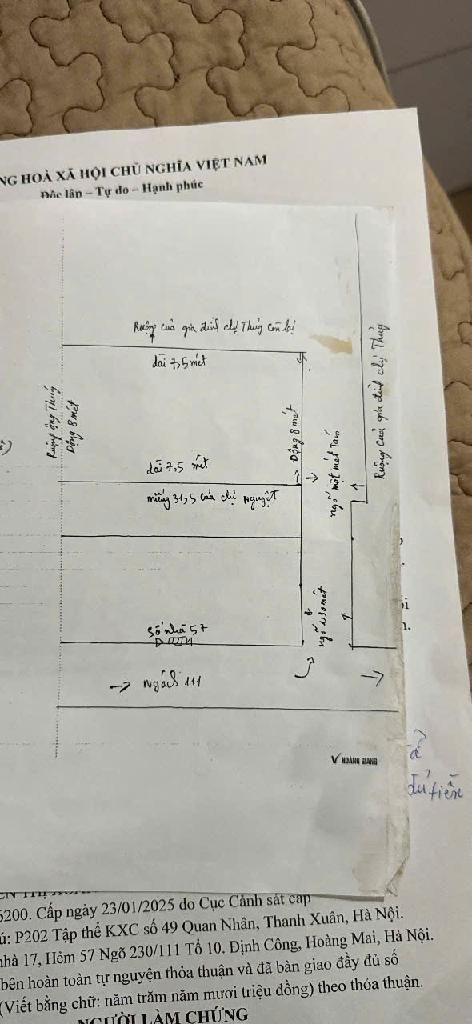 NG HOÀ XÃ HỘI CHỦ NGHĨA VIỆT NAM
Độc lập – Tự do – Hạnh phúc
Ruộng của gia đình chị Thủy còn lại
dài 7,5 mét
Ruộng ông Thủng
Động 8 mét
Động 8 mét
Ruộng của gia đình chị Thủy
dài 7,5 mét
ngõ một mét tám
miếng 31,5 của chị Nguyệt
Số nhà 57
Ngách 111
HOÀNG GIANG
đủ tiền
5200. Cấp ngày 23/01/2025 do Cục Cảnh sát cấp
ú: P202 Tập thể KXC số 49 Quan Nhân, Thanh Xuân, Hà Nội.
nhà 17, Hẻm 57 Ngõ 230/111 Tổ 10. Định Công, Hoàng Mai, Hà Nội.
bên hoàn toàn tự nguyện thỏa thuận và đã bàn giao đầy đủ số
(Viết bằng chữ: năm trăm năm mươi triệu đồng) theo thỏa thuận.
NGƯỜI LÀM CHỨNG